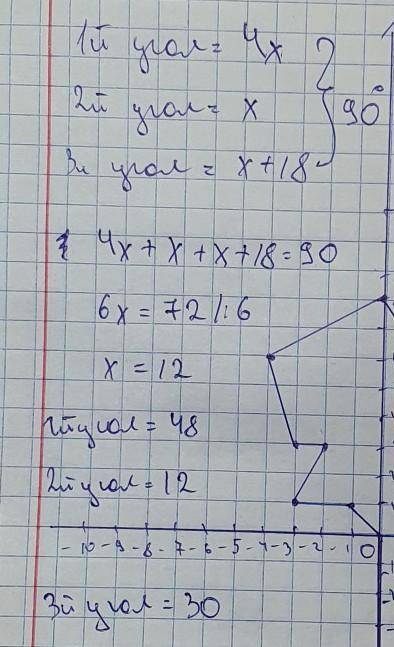 1й угол = 4x
2й угол = x
90°
3й угол = x+18
4x + x + x+18 = 90
6x = 72 /:6
x = 12
1й угол = 48
2й угол = 12
-10 -9 -8 -7 -6 -5 -4 -3 -2 -1 0
3й угол = 30